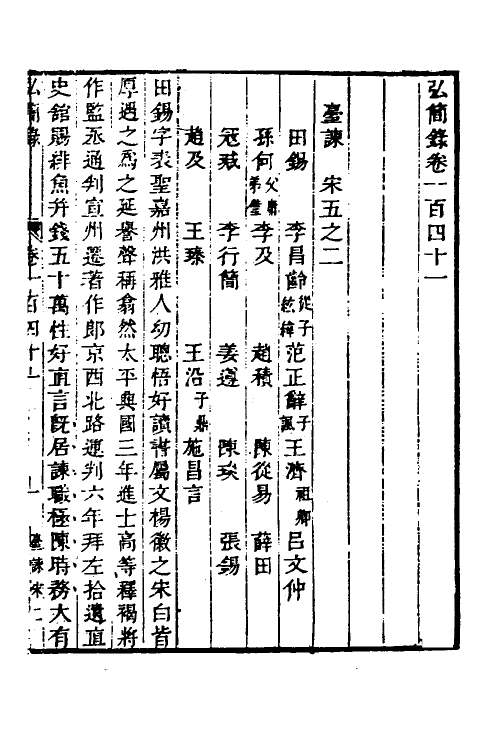 弘簡錄卷一百四十一
臺諫 宋五之二
田錫 李昌齡從子紘緯 范正辭子諷 王濟祖卿 呂文仲
孫何父庸弟僅 李及 趙積 陳從易 薛田
寇瑊 李行簡 姜遵 陳琰 張錫
趙及 王臻 王沿子鼎 施昌言
田錫字表聖嘉州洪雅人幼聰悟好讀書屬文楊徽之宋白皆
厚遇之為之延譽聲稱翕然太平興國三年進士高等釋褐將
作監丞通判宣州遷著作郎京西北路運判六年拜左拾遺直
史館賜緋魚并錢五十萬性好直言旣居諫職極陳時務大有
弘簡錄 卷一百四十一 一 臺諫宋二